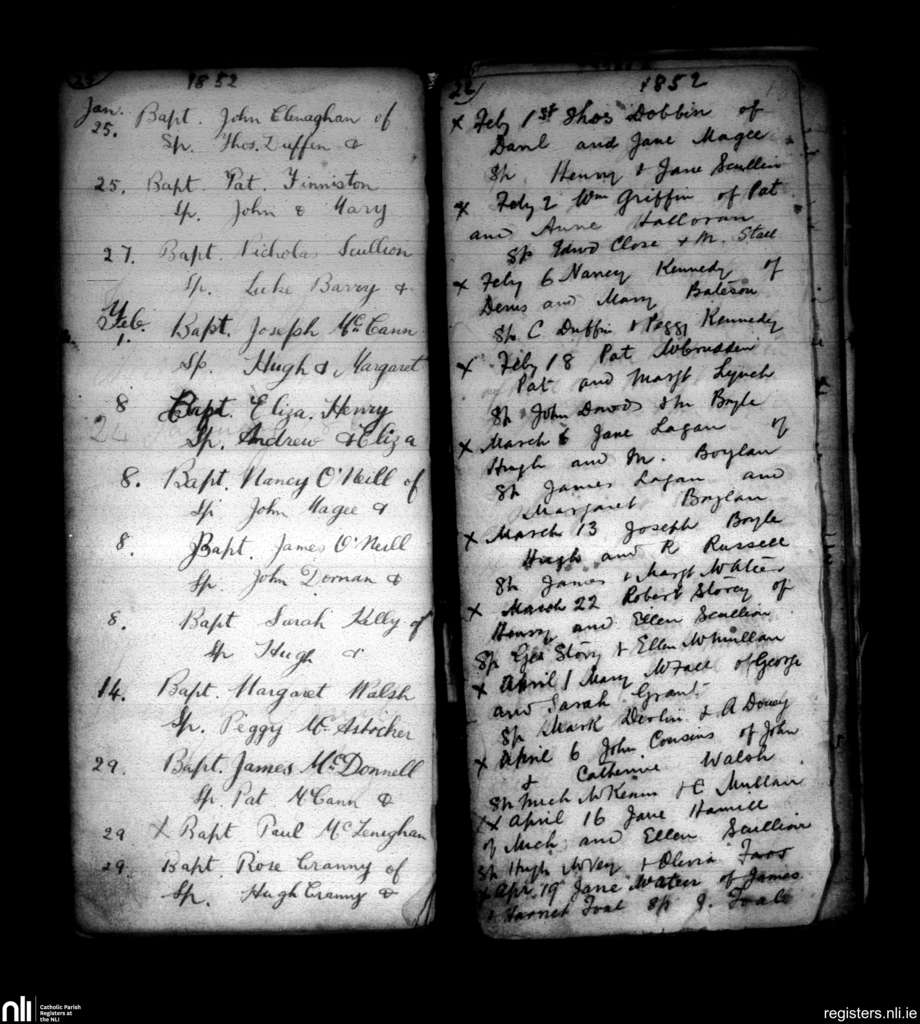 25
1852
Jan.
25. Bapt. John Clenaghan of
Sp. Thos. Duffin &
25. Bapt. Pat. Finniston
Sp. John & Mary
27. Bapt. Nicholas Scullion
Sp. Luke Barry &
Feb.
1. Bapt. Joseph McCann
Sp. Hugh & Margaret
8 Bapt. Eliza. Henry
24
Sp. Andrew & Eliza
8. Bapt. Nancy O'Neill of
Sp John Magee &
8. Bapt. James O'Neill
Sp. John Dornan &
8. Bapt Sarah Kelly of
Sp Hugh &
14. Bapt. Margaret Walsh
Sp. Peggy Mc
29. Bapt. James McDonnell
Sp. Pat McCann &
29 X Bapt Paul McLeneghan
29. Bapt. Rose Cranny of
Sp. Hugh Cranny &
26
1852
x Feby 1st Thos Dobbin of
Danl and Jane Magee
Sp Henry & Jane Scullion
x Feby 2 Wm Griffin of Pat
and Anne Halloran
Sp Edwd Close + M.
x Feby 6 Nancy Kennedy of
Denis and Mary Bateson
Sp C Duffin & Peggy Kennedy
x Feby 18 Pat
Pat and Margt Lynch
Sp John Boyle
x March 6 Jane Lagan of
Hugh and M. Boylan
Sp James Lagan and
Margaret Boylan
x March 13 Joseph Boyle
Hugh and R Russell
Sp James & Margt McAteer
x March 22 Robert Storey of
Henry and Ellen Scullion
Sp Story & Ellen McMullan
x April 1 Mary McFall of George
and Sarah Grant
Sp Mark Devlin & A
x April 6 John Cousins of John
& Catherine Walsh
Sp Mich McKenna & C Mullan
x x April 16 Jane Hamill
of Mich and Ellen Scullion
Sp Hugh McVey & Olivia
x Apr 19 Jane of James
& Harriet Toal Sp J. Toal
nli
Catholic Parish
Registers at
the NLI
registers.nli.ie